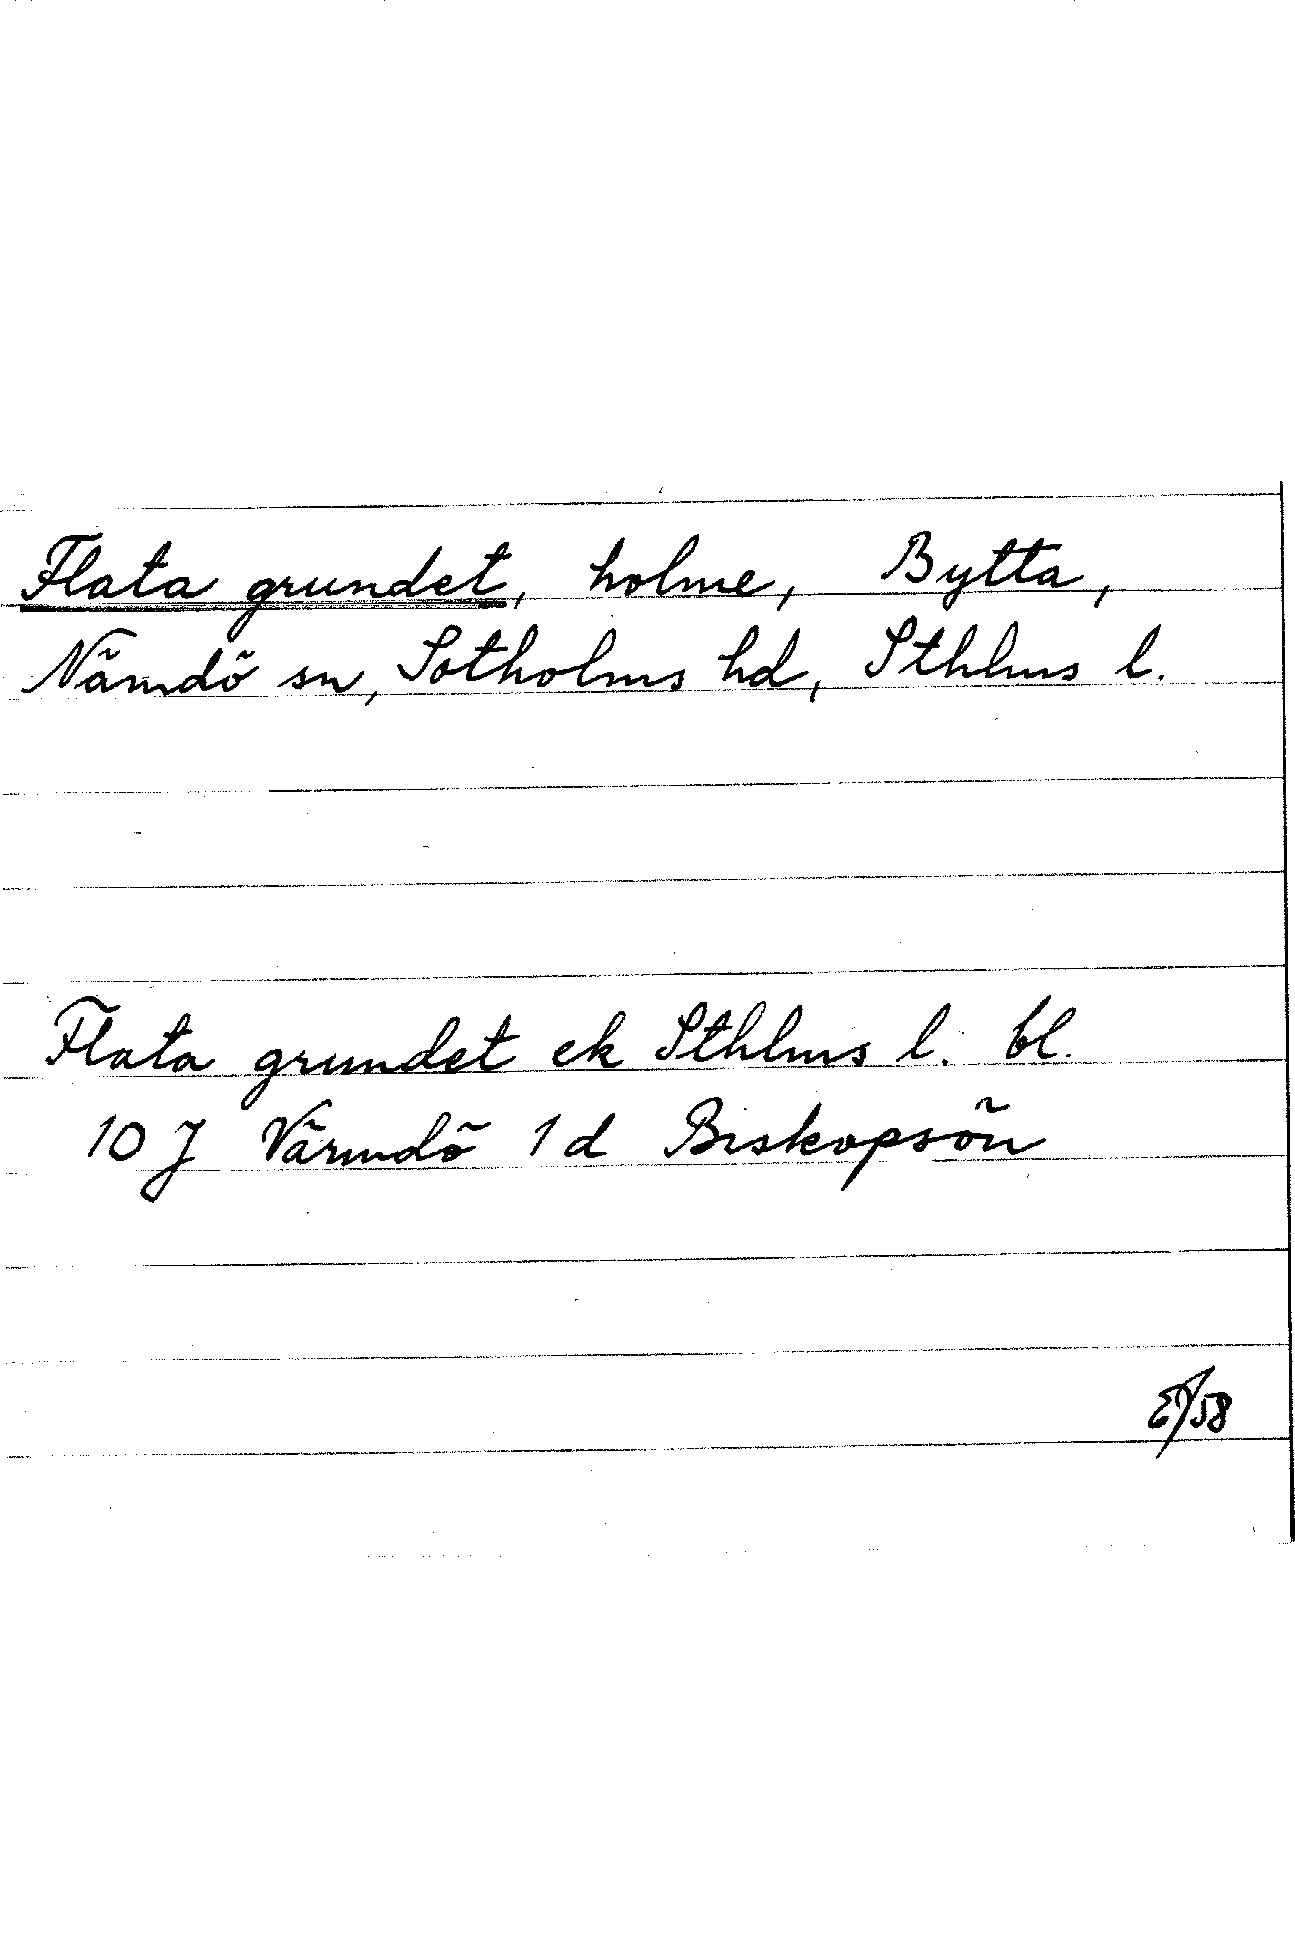 Flata grundet, holme, Bytta,
Nämdö sn, Sotholms hd, Sthlms l.
Flata grundet ek Sthlms l. bl.
10 J Värmdö 1 d Biskopsön